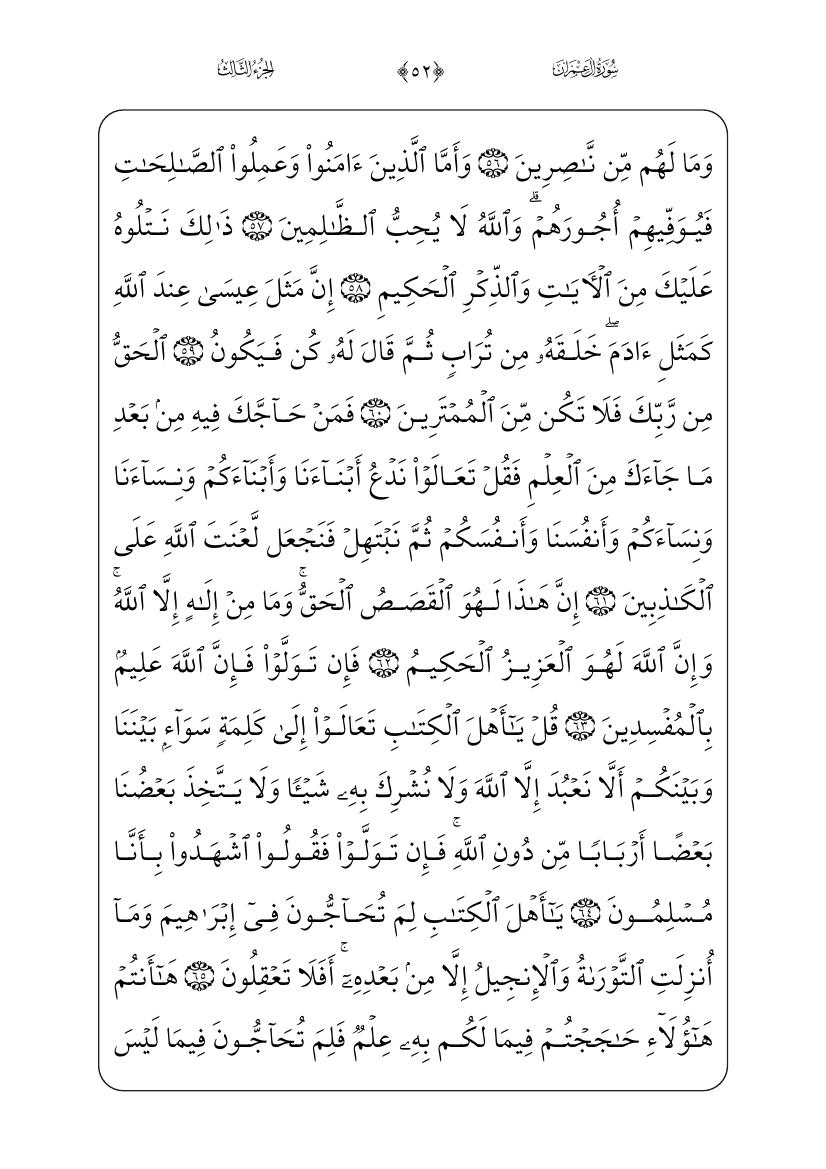 سُورَةُ آلِ عِمْرَانَ ﴿٥٢﴾ الجُزْءُ الثَّالِثُ
وَمَا لَهُم مِّن نَّٰصِرِينَ ٥٦ وَأَمَّا ٱلَّذِينَ ءَامَنُوا۟ وَعَمِلُوا۟ ٱلصَّٰلِحَٰتِ
فَيُوَفِّيهِمْ أُجُورَهُمْ ۗ وَٱللَّهُ لَا يُحِبُّ ٱلظَّٰلِمِينَ ٥٧ ذَٰلِكَ نَتْلُوهُ
عَلَيْكَ مِنَ ٱلْأَيَٰتِ وَٱلذِّكْرِ ٱلْحَكِيمِ ٥٨ إِنَّ مَثَلَ عِيسَىٰ عِندَ ٱللَّهِ
كَمَثَلِ ءَادَمَ ۖ خَلَقَهُۥ مِن تُرَابٍ ثُمَّ قَالَ لَهُۥ كُن فَيَكُونُ ٥٩ ٱلْحَقُّ
مِن رَّبِّكَ فَلَا تَكُن مِّنَ ٱلْمُمْتَرِينَ ٦٠ فَمَنْ حَآجَّكَ فِيهِ مِنۢ بَعْدِ
مَا جَآءَكَ مِنَ ٱلْعِلْمِ فَقُلْ تَعَالَوْا۟ نَدْعُ أَبْنَآءَنَا وَأَبْنَآءَكُمْ وَنِسَآءَنَا
وَنِسَآءَكُمْ وَأَنفُسَنَا وَأَنفُسَكُمْ ثُمَّ نَبْتَهِلْ فَنَجْعَل لَّعْنَتَ ٱللَّهِ عَلَى
ٱلْكَٰذِبِينَ ٦١ إِنَّ هَٰذَا لَهُوَ ٱلْقَصَصُ ٱلْحَقُّ ۚ وَمَا مِنْ إِلَٰهٍ إِلَّا ٱللَّهُ ۚ
وَإِنَّ ٱللَّهَ لَهُوَ ٱلْعَزِيزُ ٱلْحَكِيمُ ٦٢ فَإِن تَوَلَّوْا۟ فَإِنَّ ٱللَّهَ عَلِيمٌۢ
بِٱلْمُفْسِدِينَ ٦٣ قُلْ يَٰٓأَهْلَ ٱلْكِتَٰبِ تَعَالَوْا۟ إِلَىٰ كَلِمَةٍ سَوَآءٍۭ بَيْنَنَا
وَبَيْنَكُمْ أَلَّا نَعْبُدَ إِلَّا ٱللَّهَ وَلَا نُشْرِكَ بِهِۦ شَيْـًٔا وَلَا يَتَّخِذَ بَعْضُنَا
بَعْضًا أَرْبَابًا مِّن دُونِ ٱللَّهِ ۚ فَإِن تَوَلَّوْا۟ فَقُولُوا۟ ٱشْهَدُوا۟ بِأَنَّا
مُسْلِمُونَ ٦٤ يَٰٓأَهْلَ ٱلْكِتَٰبِ لِمَ تُحَآجُّونَ فِىٓ إِبْرَٰهِيمَ وَمَآ
أُنزِلَتِ ٱلتَّوْرَىٰةُ وَٱلْإِنجِيلُ إِلَّا مِنۢ بَعْدِهِۦٓ ۚ أَفَلَا تَعْقِلُونَ ٦٥ هَٰٓأَنتُمْ
هَٰٓؤُلَآءِ حَٰجَجْتُمْ فِيمَا لَكُم بِهِۦ عِلْمٌ فَلِمَ تُحَآجُّونَ فِيمَا لَيْسَ